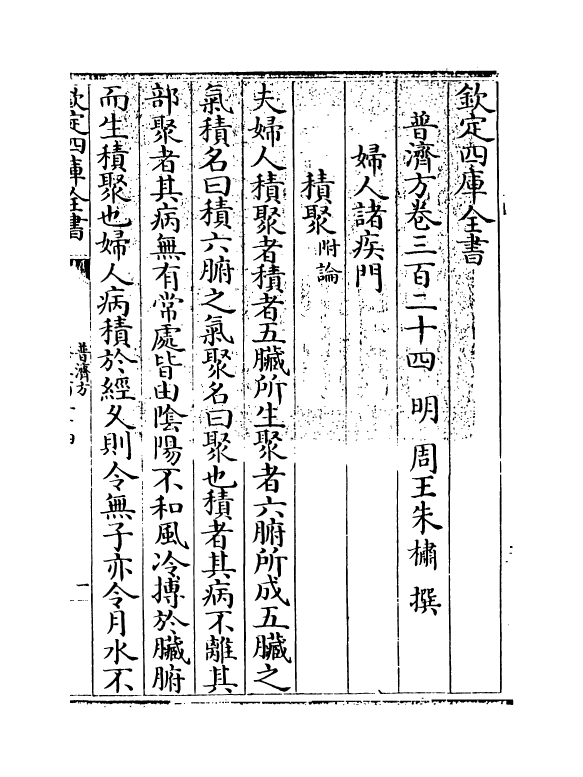 欽定四庫全書
普濟方卷三百二十四 明 周王朱橚 撰
婦人諸疾門
積聚附論
夫婦人積聚者積者五臟所生聚者六腑所成五臟之
氣積名曰積六腑之氣聚名曰聚也積者其病不離其
部聚者其病無有常處皆由陰陽不和風冷搏於臟腑
而生積聚也婦人病積於經久則令無子亦令月水不
欽定四庫全書
普濟方
一